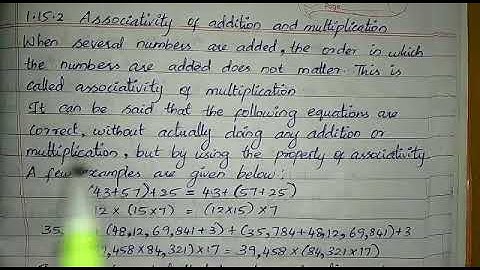 Page
1.15.2 Associativity of addition and multiplication
When several numbers are added, the order in which
the numbers are added does not matter. This is
called associativity of multiplication
It can be said that the following equations are
correct, without actually doing any addition or
multiplication, but by using the property of associativity
A few examples are given below:
(43+57)+25 = 43+(57+25)
12 × (15×7) = (12×15) × 7
35, (48,12,69,841+3) + (35,784+48,12,69,841)+3
,458×84,321)×17 = 39,458×(84,321×17)